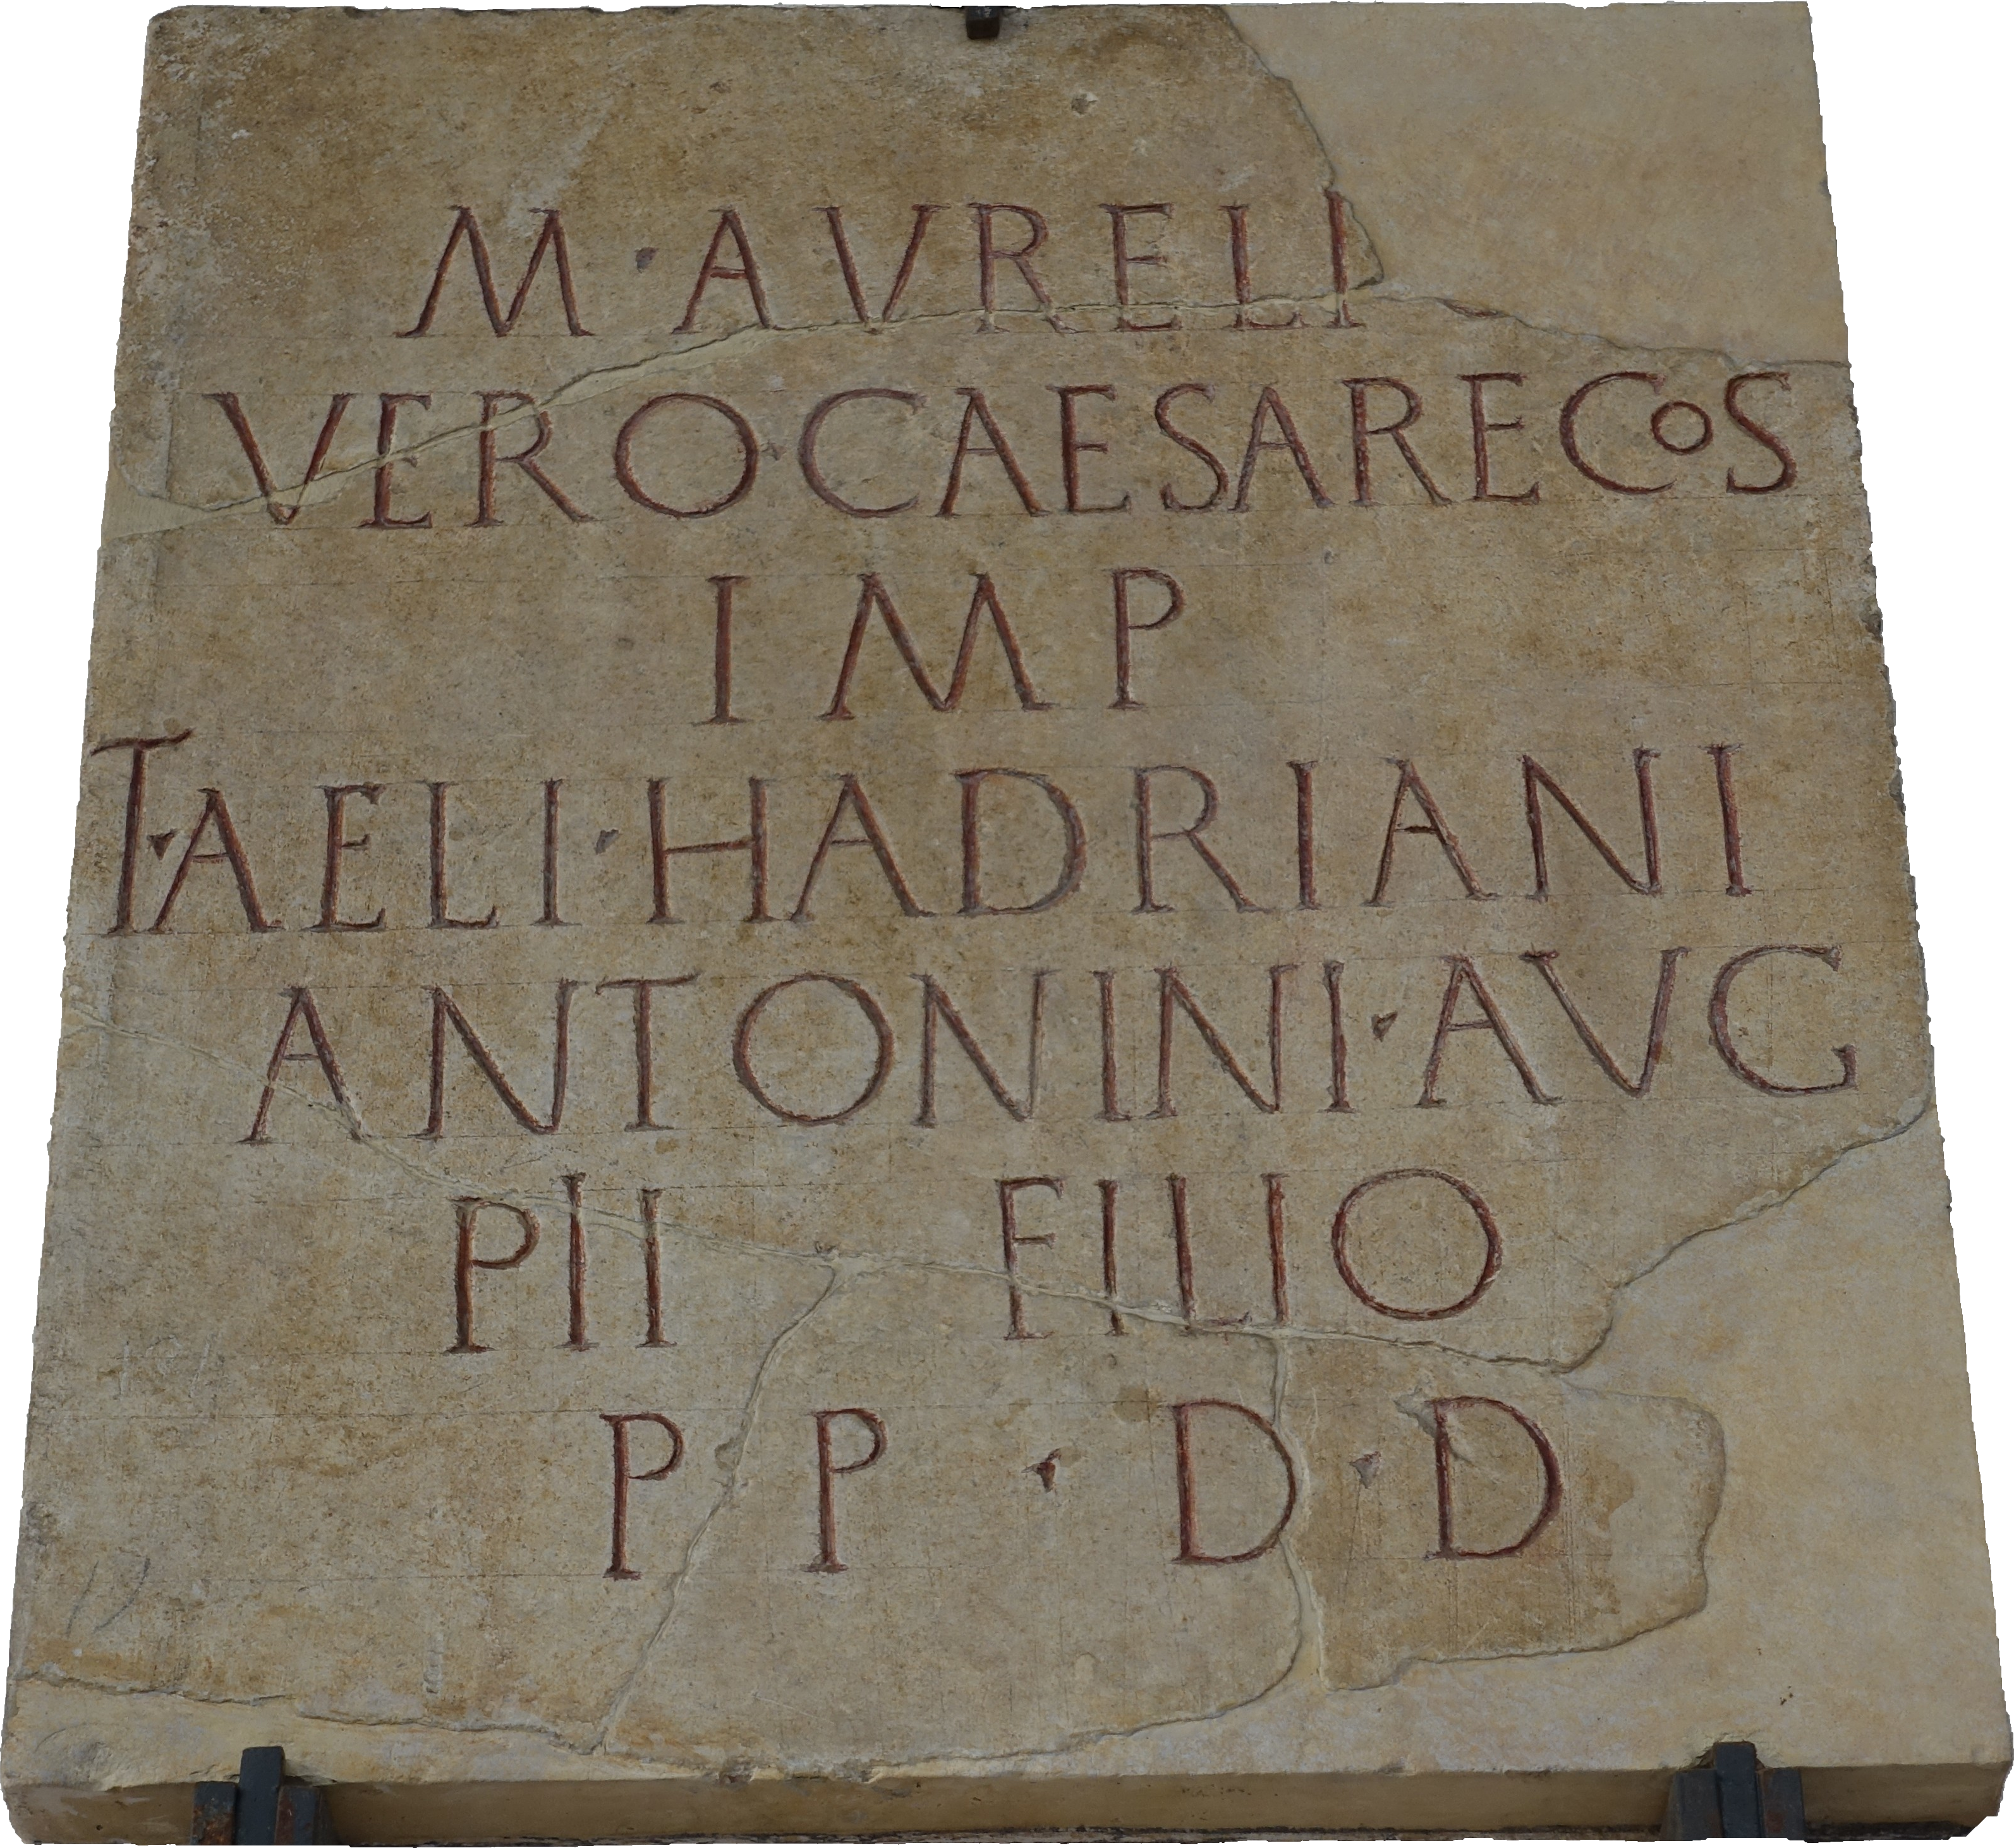 M · AVRELI
VERO · CAESARE COS
IMP
T · AELI · HADRIANI
ANTONINI · AVG
PII FILIO
P P · D · D